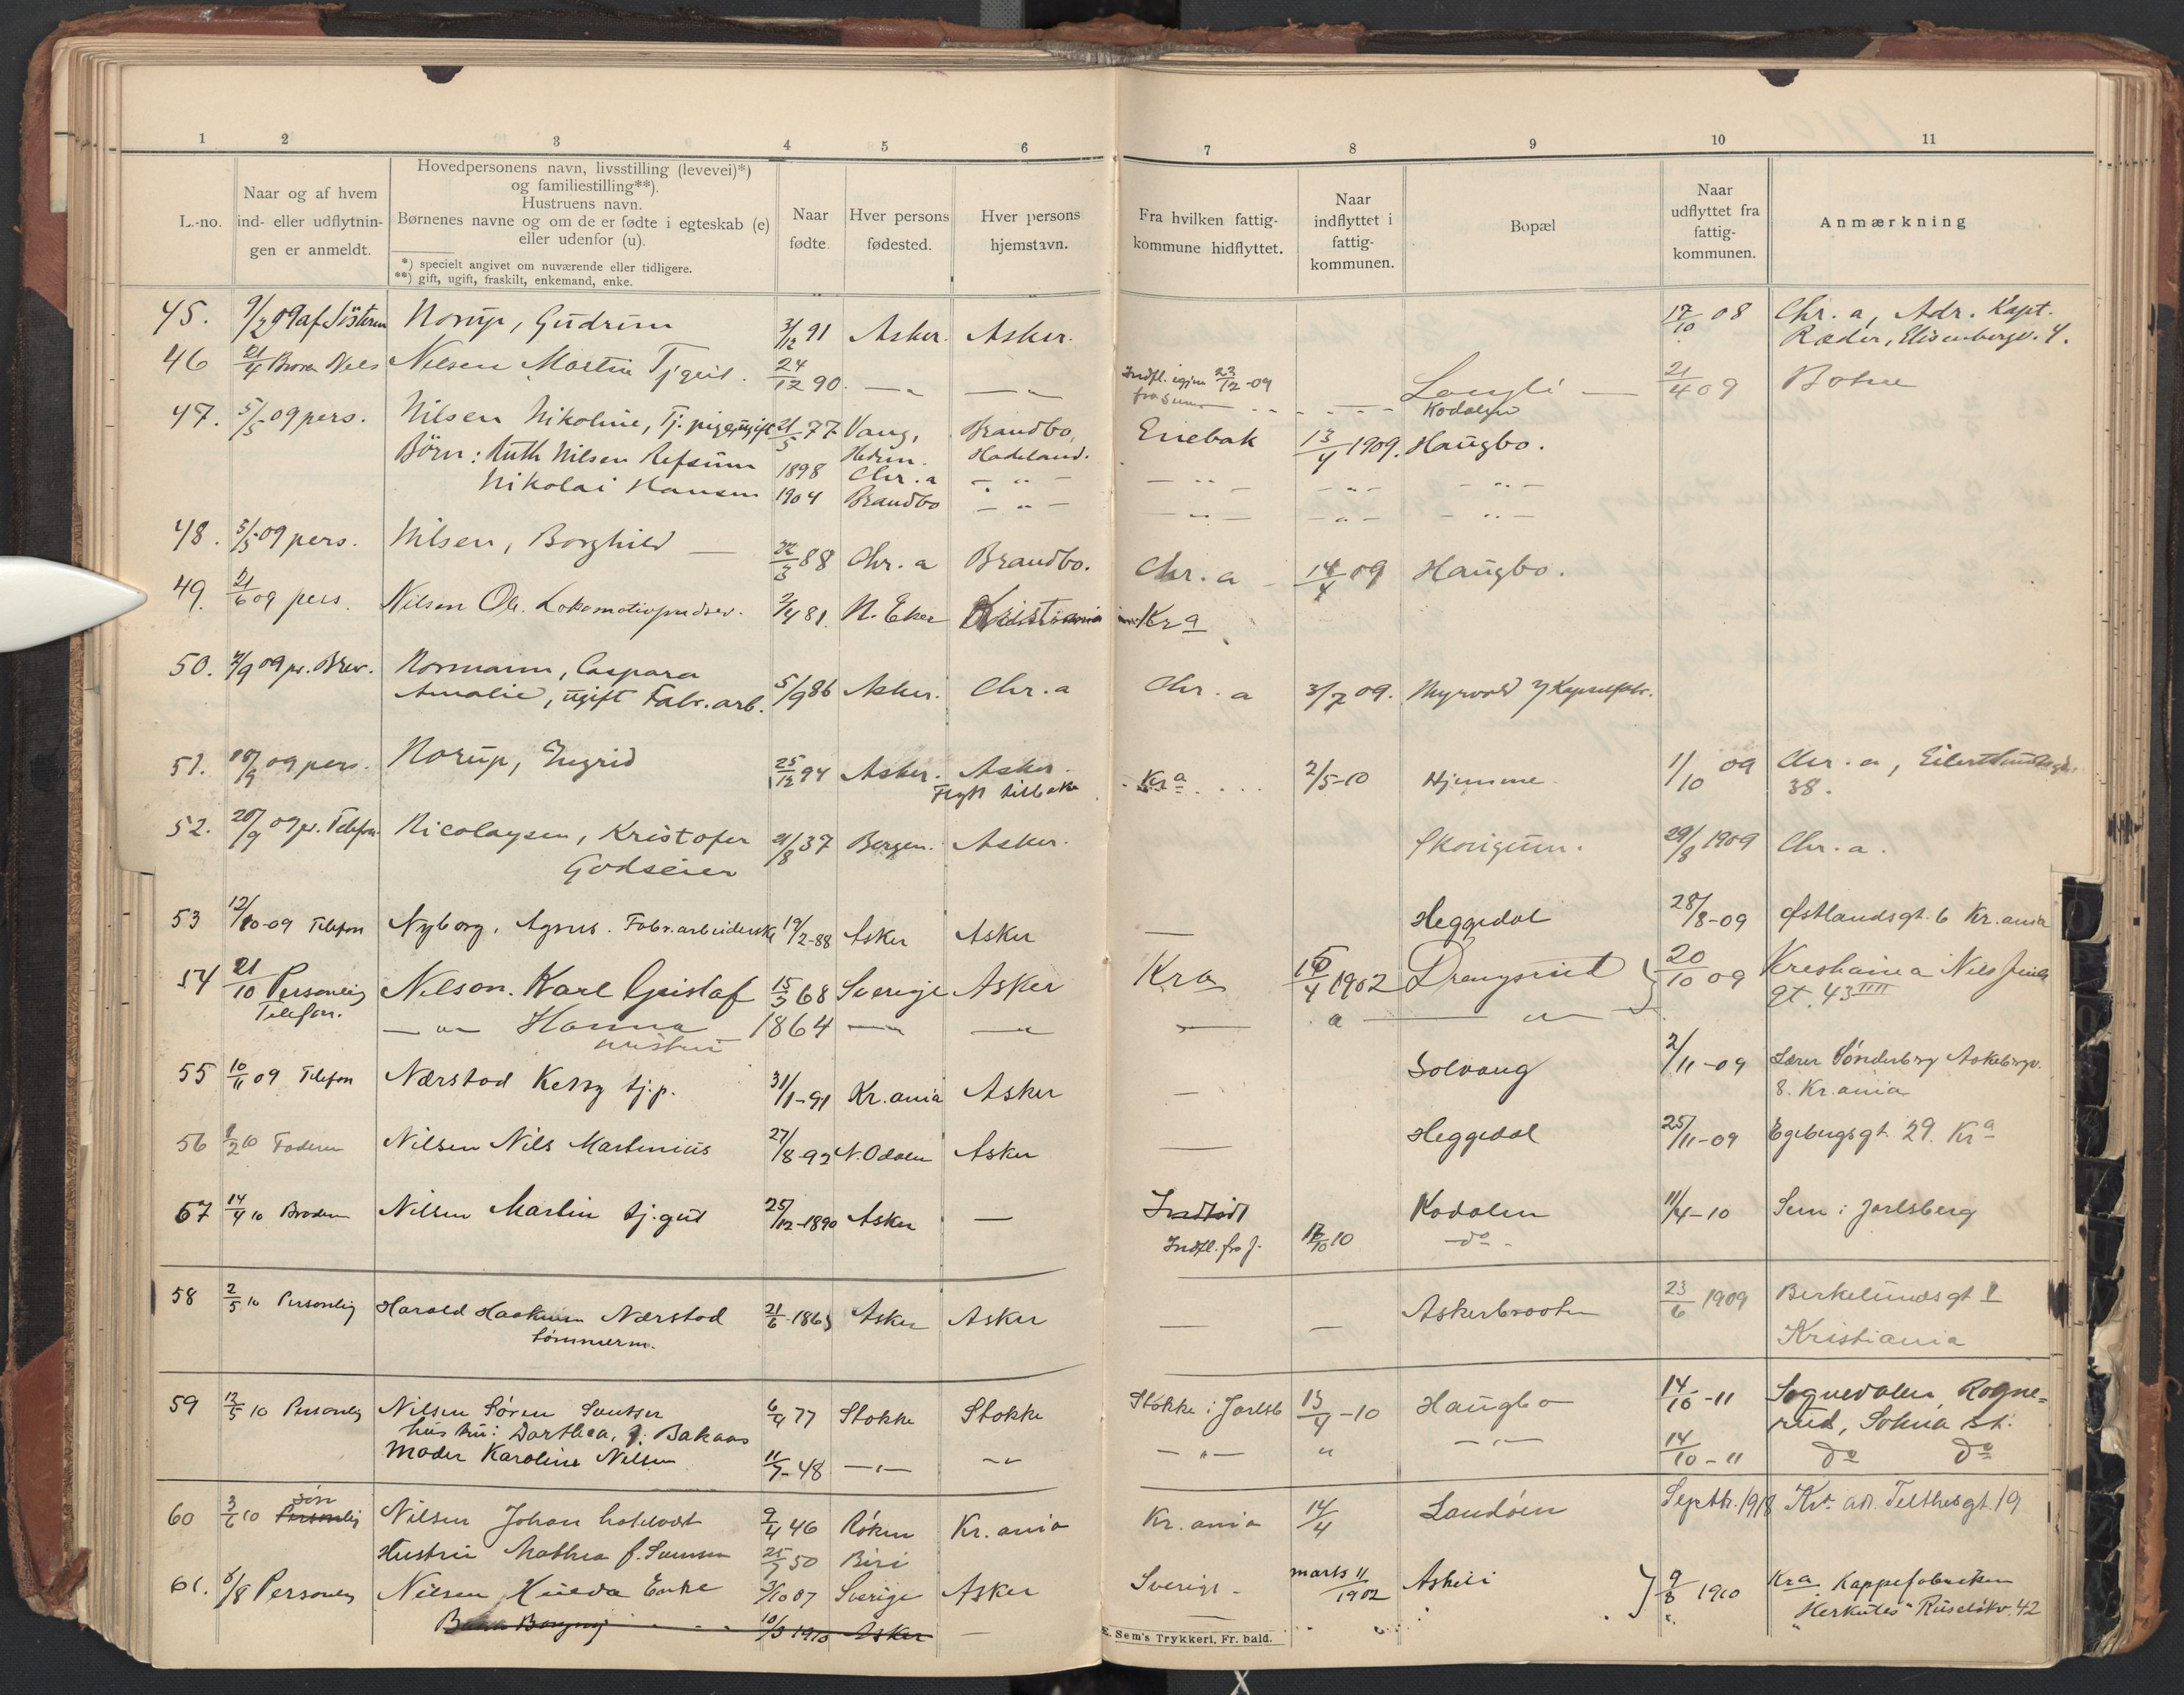 1 2 3 4 5 6 7 8 9 10 11
L.-no.
Naar og af hvem
ind- eller udflytnin-
gen er anmeldt.
Hovedpersonens navn, livsstilling (levevei)*)
og familiestilling**).
Hustruens navn.
Børnenes navne og om de er fødte i egteskab (e)
eller udenfor (u).
*) specielt angivet om nuværende eller tidligere.
**) gift, ugift, fraskilt, enkemand, enke.
Naar
fødte.
Hver persons
fødested.
Hver persons
hjemstavn.
Fra hvilken fattig-
kommune hidflyttet.
Naar
indflyttet i
fattig-
kommunen.
Bopæl
Naar
udflyttet fra
fattig-
kommunen.
Anmærkning
45. 9/2 09 af Søsteren Norup, Gudrun 3/12 91 Asker. Asker. 17/10 08 Chr.a, Adr. Kapt.
Ræder, Elisenbergv. 4.
46 21/4 Broren Nils Nilsen Martin Tjgut. 24/12 90. —"— —"— Indfl. igjen 23/12-09 Langli 21/4 09 Botne
fra Sem Kodalen
47. 5/5 09 pers. Nilsen Nikoline, Tj. pige, ugift 21/5 77 Vang, Brandbo, Enebak 13/4 1909. Haugbo.
Hedm. Hadeland.
Børn: Ruth Nilsen Refsum 1898 Chr.a —"— —"— —"— —"—
Nikolai Hansen 1904 Brandbo —"— —"— —"— —"—
48. 5/5 09 pers. Nilsen, Borghild — 22/3 88 Chr.a Brandbo. Chr.a 14/4 09 Haugbo.
49. 21/6 09 pers. Nilsen Ole. Lokomotivpudser. 2/4 81. N. Eker Kristiania Kra
50. 2/9 09 pr. Brev. Normann, Caspara
Amalie, ugift Fabr. arb. 5/9 86 Asker. Chr.a Chr.a 3/7 09. Myrvold
51. 18/9 09 pers. Norup, Ingrid 25/12 94 Asker. Asker. Kra 2/5-10 Hjemme 1/10 09 Chr.a, Eilert Sundtsgt.
Flyt tilbake 38.
52. 20/9 09 pr. Telefon Nicolaysen, Kristofer 21/8 37 Bergen. Asker. Skougum. 29/8 1909 Chr.a.
Godseier
53 12/10-09 Telefon Nyborg, Agnes. Fabr. arbeiderske 19/2-88 Asker Asker — Heggedal 28/8-09 Østlandsgt. 6 Kr.ania
54 21/10 Personlig Nilson. Karl Gustaf 15/3 68 Sverige Asker Kra 15/4 1902 Drengsrud 20/10 09 Kristiania Nils Juels
Telefon. gt. 43 IIII
—"— Hanna 1864 —"— —"— —"— —"—
hustru
55 10/11 09 Telefon Nærstad Kessy tj.p. 31/1-91 Kr.ania Asker — Solvang 2/11-09 Lærer Sønderborg Akebergv.
8. Kr.ania
56 1/2 10 Faderen Nilsen Nils Martinius 27/8-92 N. Odalen Asker — Heggedal 25/11-09 Egebergsgt. 29. Kra
57 14/4 10 Broderen Nilsen Martin tj.gut 25/12-1890 Asker — Indfødt Kodalen 11/4-10 Sem i Jarlsberg
Indfl. fra J. 12/10 10 —do—
58 2/5 10 Personlig Harald Haakensen Nærstad 21/6-1865 Asker Asker — — Askerbraaten 23/6 1909 Birkelundsgt 1
tømmerm. Kristiania
59 12/5 10 Personlig Nilsen Søren 6/9 77 Stokke Stokke Stokke i Jarlsb 13/4-10 Haugbo 14/10-11 Sognedalen, Rogne-
hustru: Dorthea, f. Bakaas rud, Sokna st.
Moder Karoline Nilsen 11/7-48 —"— —"— —"— " —"— 14/10-11 do do
60 3/6 10 søn Personlig Nilsen Johan 9/4 46 Røken Kr.ania Kr.ania 14/4 Landøien Septbr. 1918 Kr. adr. Telthusgt. 19
Hustru Mathea f. Svensen 25/7 50 Biri
61. 8/8 Personlig Nilsen Hulda Enke 3/10 87 Sverige Asker Sverige - marts 11 1902 Askeli 9/8 1910 Kra Kappefabriken
"Herkules" Ruseløkv. 42
Barn Borgny 10/3 1910 Asker —
E. Sem's Trykkeri, Fr. hald.